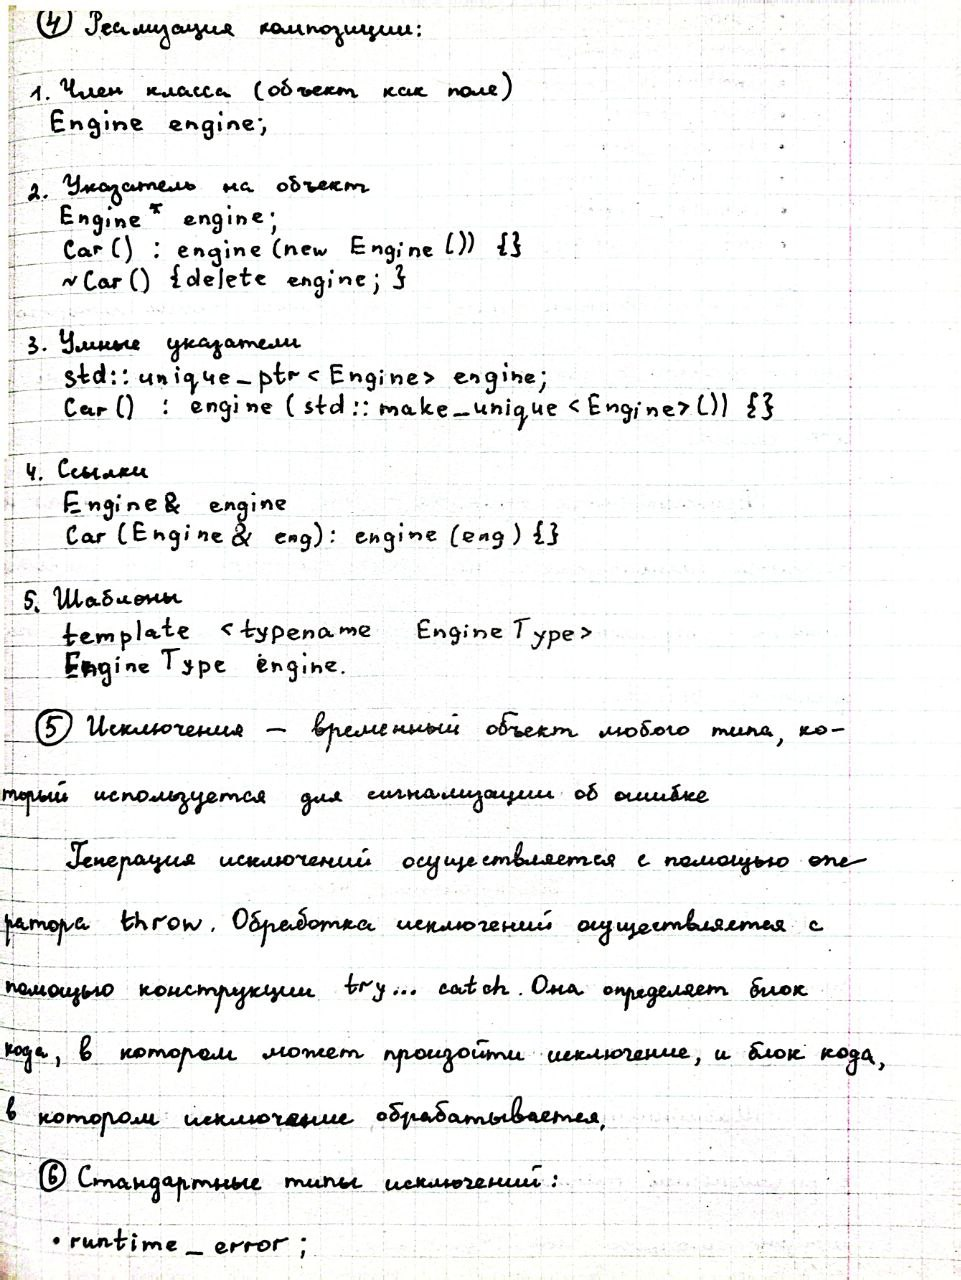 ④ Реализация композиции:
1. Член класса (объект как поле)
Engine engine;
2. Указатель на объект
Engine* engine;
Car() : engine(new Engine()) {}
~Car() {delete engine; }
3. Умные указатели
std::unique_ptr<Engine> engine;
Car() : engine (std::make_unique<Engine>()) {}
4. Ссылки
Engine& engine
Car (Engine& eng): engine (eng) {}
5. Шаблоны
template <typename EngineType>
EngineType engine.
⑤ Исключения – временный объект любого типа, ко-
торый используется для сигнализации об ошибке
Генерация исключений осуществляется с помощью опе-
ратора throw. Обработка исключений осуществляется с
помощью конструкции try... catch. Она определяет блок
кода, в котором может произойти исключение, и блок кода,
в котором исключение обрабатывается.
⑥ Стандартные типы исключений:
• runtime_error;